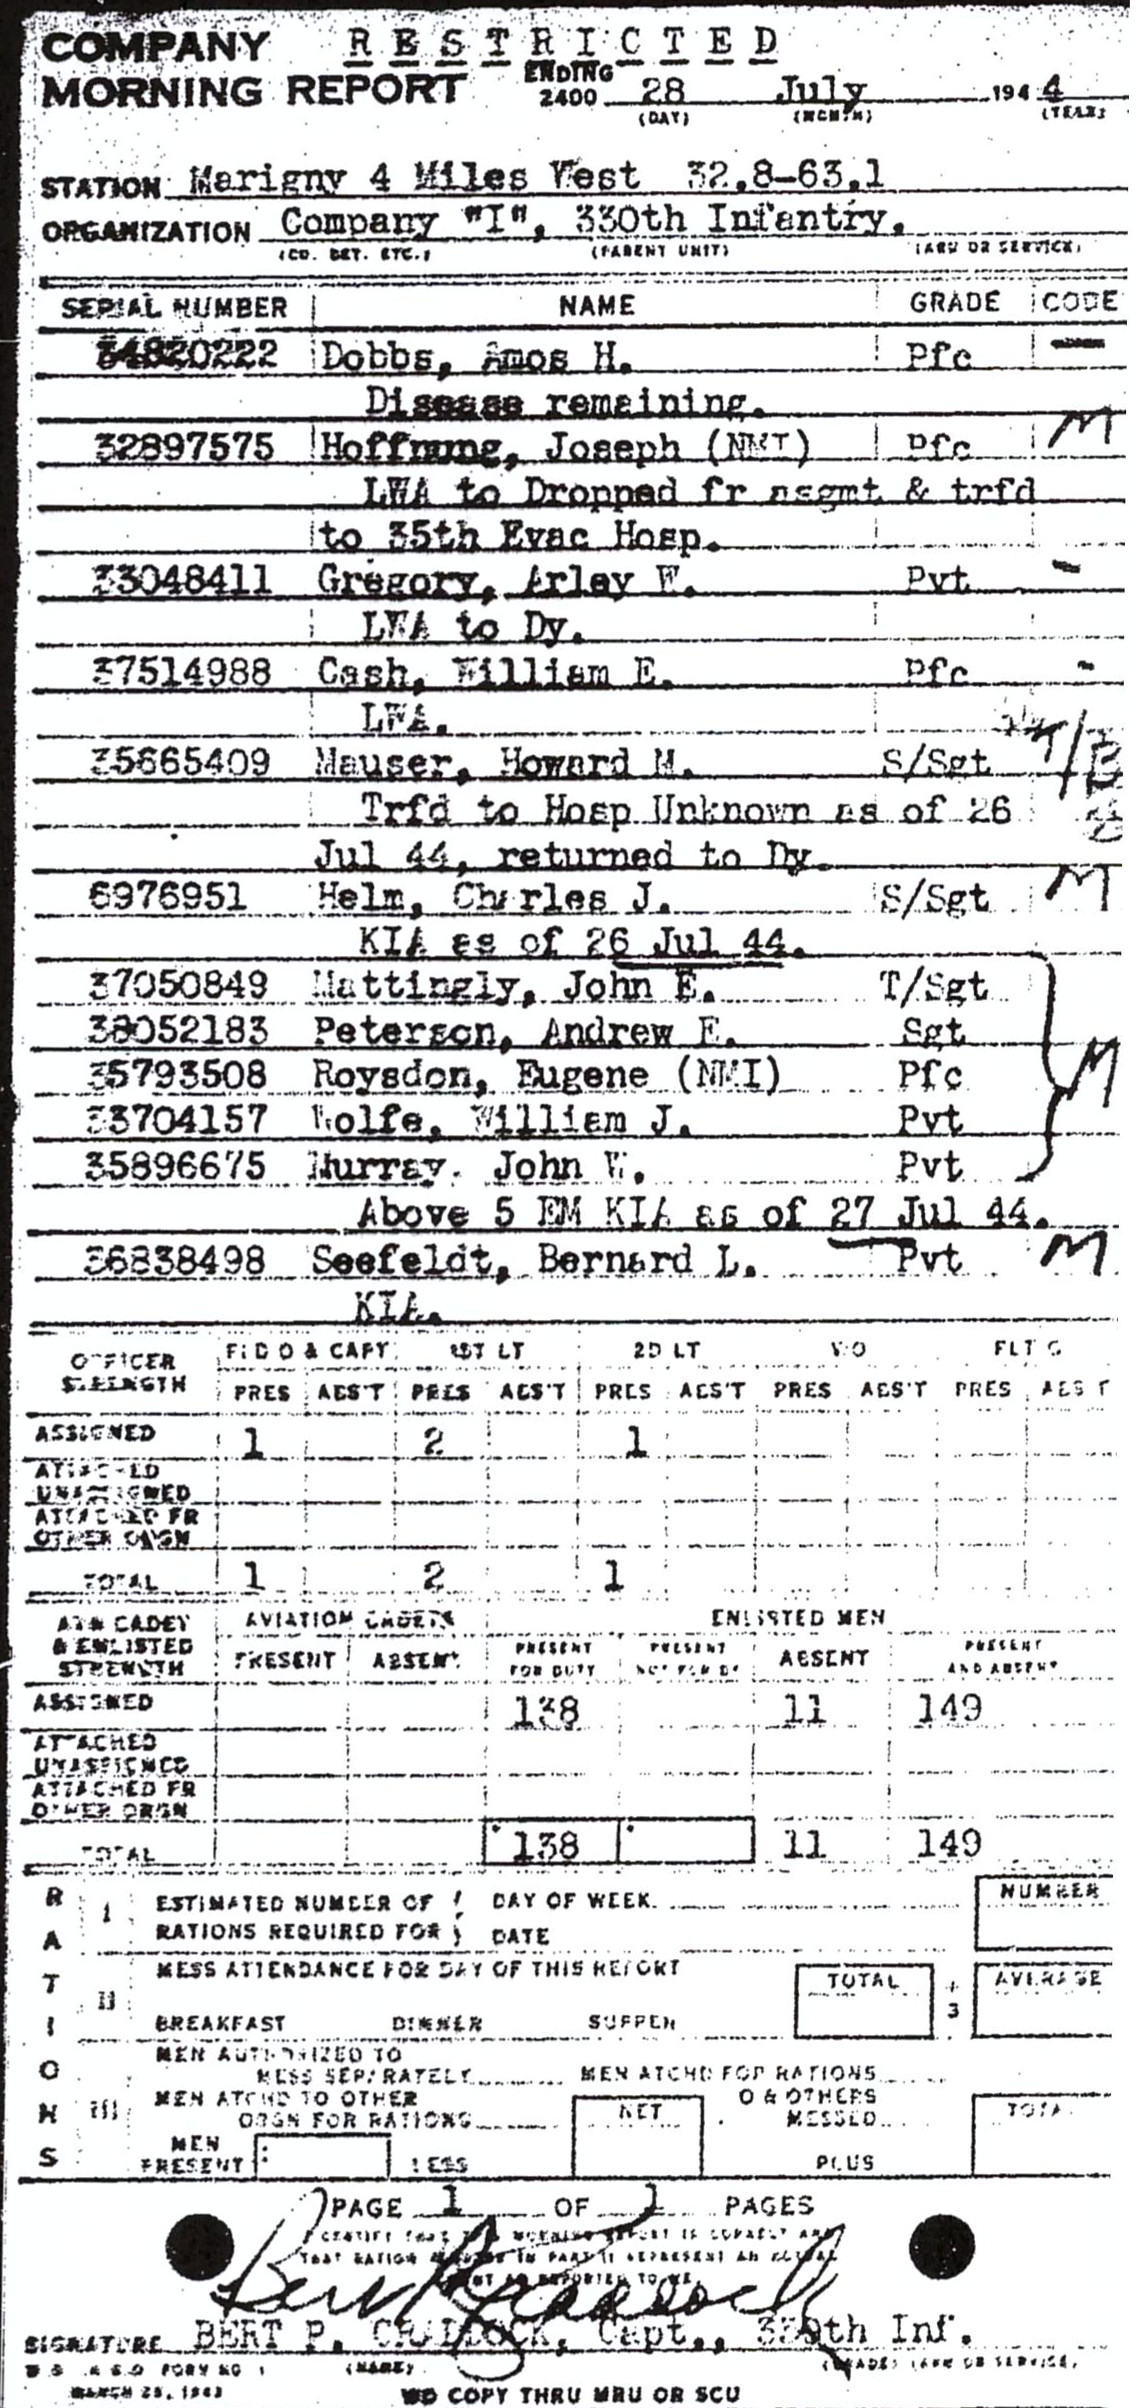 RESTRICTED
COMPANY
MORNING REPORT
ENDING
2400 28 July 1944
(DAY) (MONTH) (YEAR)
STATION Marigny 4 Miles West 32.8-63.1
ORGANIZATION Company "I", 330th Infantry.
(CO. DET. ETC.) (PARENT UNIT) (ARM OR SERVICE)
SERIAL NUMBER NAME GRADE CODE
34820222 Dobbs, Amos H. Pfc -
Disease remaining.
32897575 Hoffnung, Joseph (NMI) Pfc M
LWA to Dropped fr asgmt & trfd
to 35th Evac Hosp.
33048411 Gregory, Arley W. Pvt -
LWA to Dy.
37514988 Cash, William E. Pfc -
LWA.
35665409 Mauser, Howard M. S/Sgt
Trfd to Hosp Unknown as of 26
Jul 44, returned to Dy.
6976951 Helm, Charles J. S/Sgt M
KIA as of 26 Jul 44.
37050849 Mattingly, John E. T/Sgt
38052183 Peterson, Andrew E. Sgt
35793508 Roysdon, Eugene (NMI) Pfc M
33704157 Wolfe, William J. Pvt
35896675 Murray. John W. Pvt
Above 5 EM KIA as of 27 Jul 44.
36838498 Seefeldt, Bernard L. Pvt M
KIA.
OFFICER STRENGTH FLD O & CAPT 1ST LT 2D LT W O FLT O
PRES ABS'T PRES ABS'T PRES ABS'T PRES ABS'T PRES ABS'T
ASSIGNED 1 2 1
ATTACHED UNASSIGNED
ATTACHED FR OTHER ORGN
TOTAL 1 2 1
AVN CADET & ENLISTED STRENGTH AVIATION CADETS ENLISTED MEN
PRESENT ABSENT PRESENT FOR DUTY PRESENT NOT FOR DY ABSENT PRESENT AND ABSENT
ASSIGNED 138 11 149
ATTACHED UNASSIGNED
ATTACHED FR OTHER ORGN
TOTAL 138 11 149
RATIONS
I ESTIMATED NUMBER OF DAY OF WEEK NUMBER
RATIONS REQUIRED FOR DATE
II MESS ATTENDANCE FOR DAY OF THIS REPORT TOTAL ÷ 3 AVERAGE
BREAKFAST DINNER SUPPER
III MEN AUTHORIZED TO
MESS SEPARATELY MEN ATCHD FOR RATIONS
MEN ATCHD TO OTHER
ORGN FOR RATIONS NET O & OTHERS MESSED TOTAL
MEN PRESENT LESS PLUS
PAGE 1 OF 1 PAGES
I CERTIFY THAT THIS MORNING REPORT IS CORRECT AND
THAT RATION FIGURES IN PART II REPRESENT AN ACTUAL
COUNT AS REPORTED TO ME.
SIGNATURE BERT P. CRADDOCK, Capt., 330th Inf.
(NAME) (GRADE) (ARM OR SERVICE)
W D A G O FORM NO 1
MARCH 25, 1943
WD COPY THRU MRU OR SCU